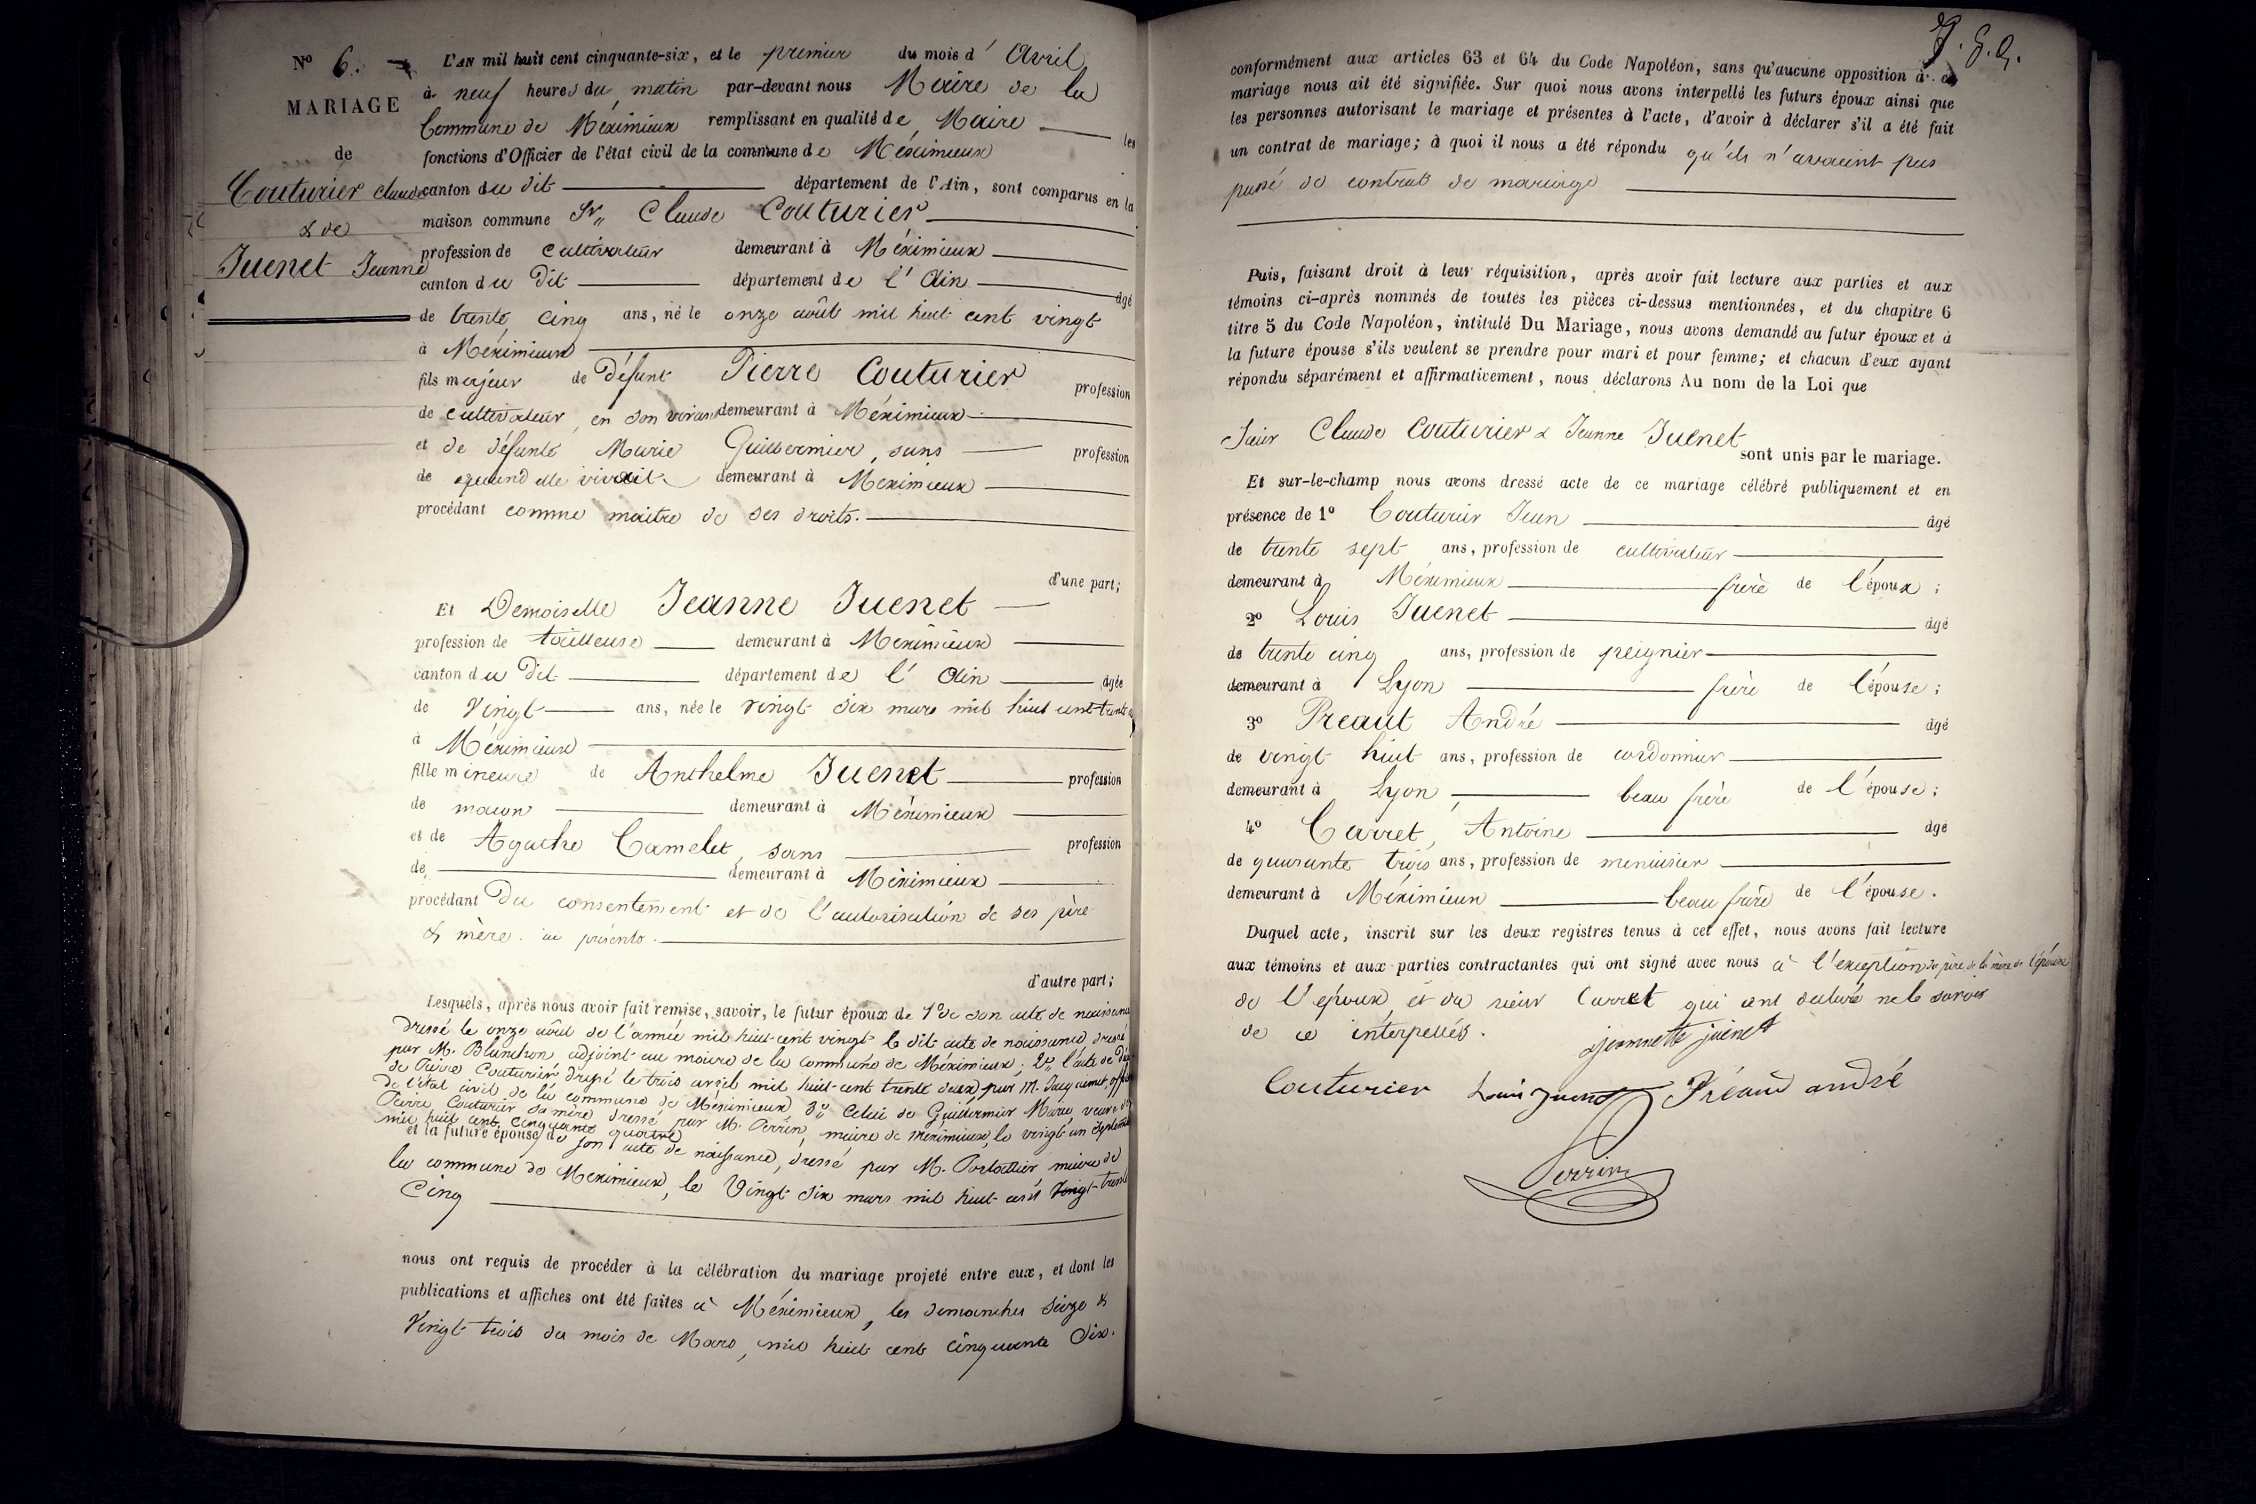 N° 6.
MARIAGE
de
Couturier Claude
& de
Juenet Jeanne
L'AN mil huit cent cinquante-six, et le premier du mois d'Avril
à neuf heures du matin par-devant nous Maire de la
Commune de Méximieux remplissant en qualité de Maire les
fonctions d'Officier de l'état civil de la commune de Méximieux
canton du dit département de l'Ain, sont comparus en la
maison commune Sr. Claude Couturier
profession de cultivateur demeurant à Méximieux
canton du dit département de l'Ain âgé
de trente cinq ans, né le onze août mil huit cent vingt
à Méximieux
fils majeur de Défunt Pierre Couturier profession
de cultivateur, en son vivant demeurant à Méximieux
et de défunte Marie Guillermier, sans profession
de quand elle vivait demeurant à Meximieux
procédant comme maitre de ses droits.
d'une part;
Et Demoiselle Jeanne Juenet
profession de tailleuse demeurant à Meximieux
canton du dit département de l'Ain âgée
de Vingt ans, née le vingt six mars mil huit cent trente
à Méximieux
fille mineure de Anthelme Juenet profession
de maçon demeurant à Méximieux
et de Agathe Camelet, sans profession
de demeurant à Méximieux
procédant du consentement et de l'autorisation de ses père
& mère. ici présents.
d'autre part;
Lesquels, après nous avoir fait remise, savoir, le futur époux de 1° de son acte de naissance
dressé le onze août de l'année mil huit cent vingt le dit acte de naissance dressé
par M. Blanchon, adjoint au maire de la commune de Méximieux; 2° l'acte de
de Pierre Couturier dressé le trois avril mil huit-cent trente deux, par M. Jacquemet,
de l'état civil de la commune de Méximieux 3° Celui de Guillermier Marie, veuve de
Pierre Couturier sa mère dressé par M. Perrin, maire de Méximieux, le vingt un Septembre
mil huit cent cinquante quatre
et la future épouse de son acte de naissance, dressé par M. Portallier maire de
la commune de Meximieux, le Vingt six mars mil huit cent vingt trente
Cinq
nous ont requis de procéder à la célébration du mariage projeté entre eux, et dont les
publications et affiches ont été faites à Méximieux, les dimanches seize &
Vingt trois du mois de Mars, mil huit cent cinquante Six.
conformément aux articles 63 et 64 du Code Napoléon, sans qu'aucune opposition à ce
mariage nous ait été signifiée. Sur quoi nous avons interpellé les futurs époux ainsi que
les personnes autorisant le mariage et présentes à l'acte, d'avoir à déclarer s'il a été fait
un contrat de mariage; à quoi il nous a été répondu qu'ils n'avaient pas
passé de contrat de mariage
Puis, faisant droit à leur réquisition, après avoir fait lecture aux parties et aux
témoins ci-après nommés de toutes les pièces ci-dessus mentionnées, et du chapitre 6
titre 5 du Code Napoléon, intitulé Du Mariage, nous avons demandé au futur époux et à
la future épouse s'ils veulent se prendre pour mari et pour femme; et chacun d'eux ayant
répondu séparément et affirmativement, nous déclarons Au nom de la Loi que
Sieur Claude Couturier & Jeanne Juenet
sont unis par le mariage.
Et sur-le-champ nous avons dressé acte de ce mariage célébré publiquement et en
présence de 1° Couturier Jean âgé
de trente sept ans, profession de cultivateur
demeurant à Méximieux frère de l'époux;
2° Louis Juenet âgé
de trente cinq ans, profession de peignier
demeurant à Lyon frère de l'épouse;
3° Preaut André âgé
de vingt huit ans, profession de cordonnier
demeurant à Lyon beau frère de l'épouse;
4° Carret, Antoine âgé
de quarante trois ans, profession de menuisier
demeurant à Méximieux beau frère de l'épouse.
Duquel acte, inscrit sur les deux registres tenus à cet effet, nous avons fait lecture
aux témoins et aux parties contractantes qui ont signé avec nous à l'exception du père de la mère de l'épouse
de l'époux, et du sieur Carret qui ont déclaré ne le savoir
de ce interpellés.
jeannette juenet
Couturier Louis Juenet Préaud andré
Perrin